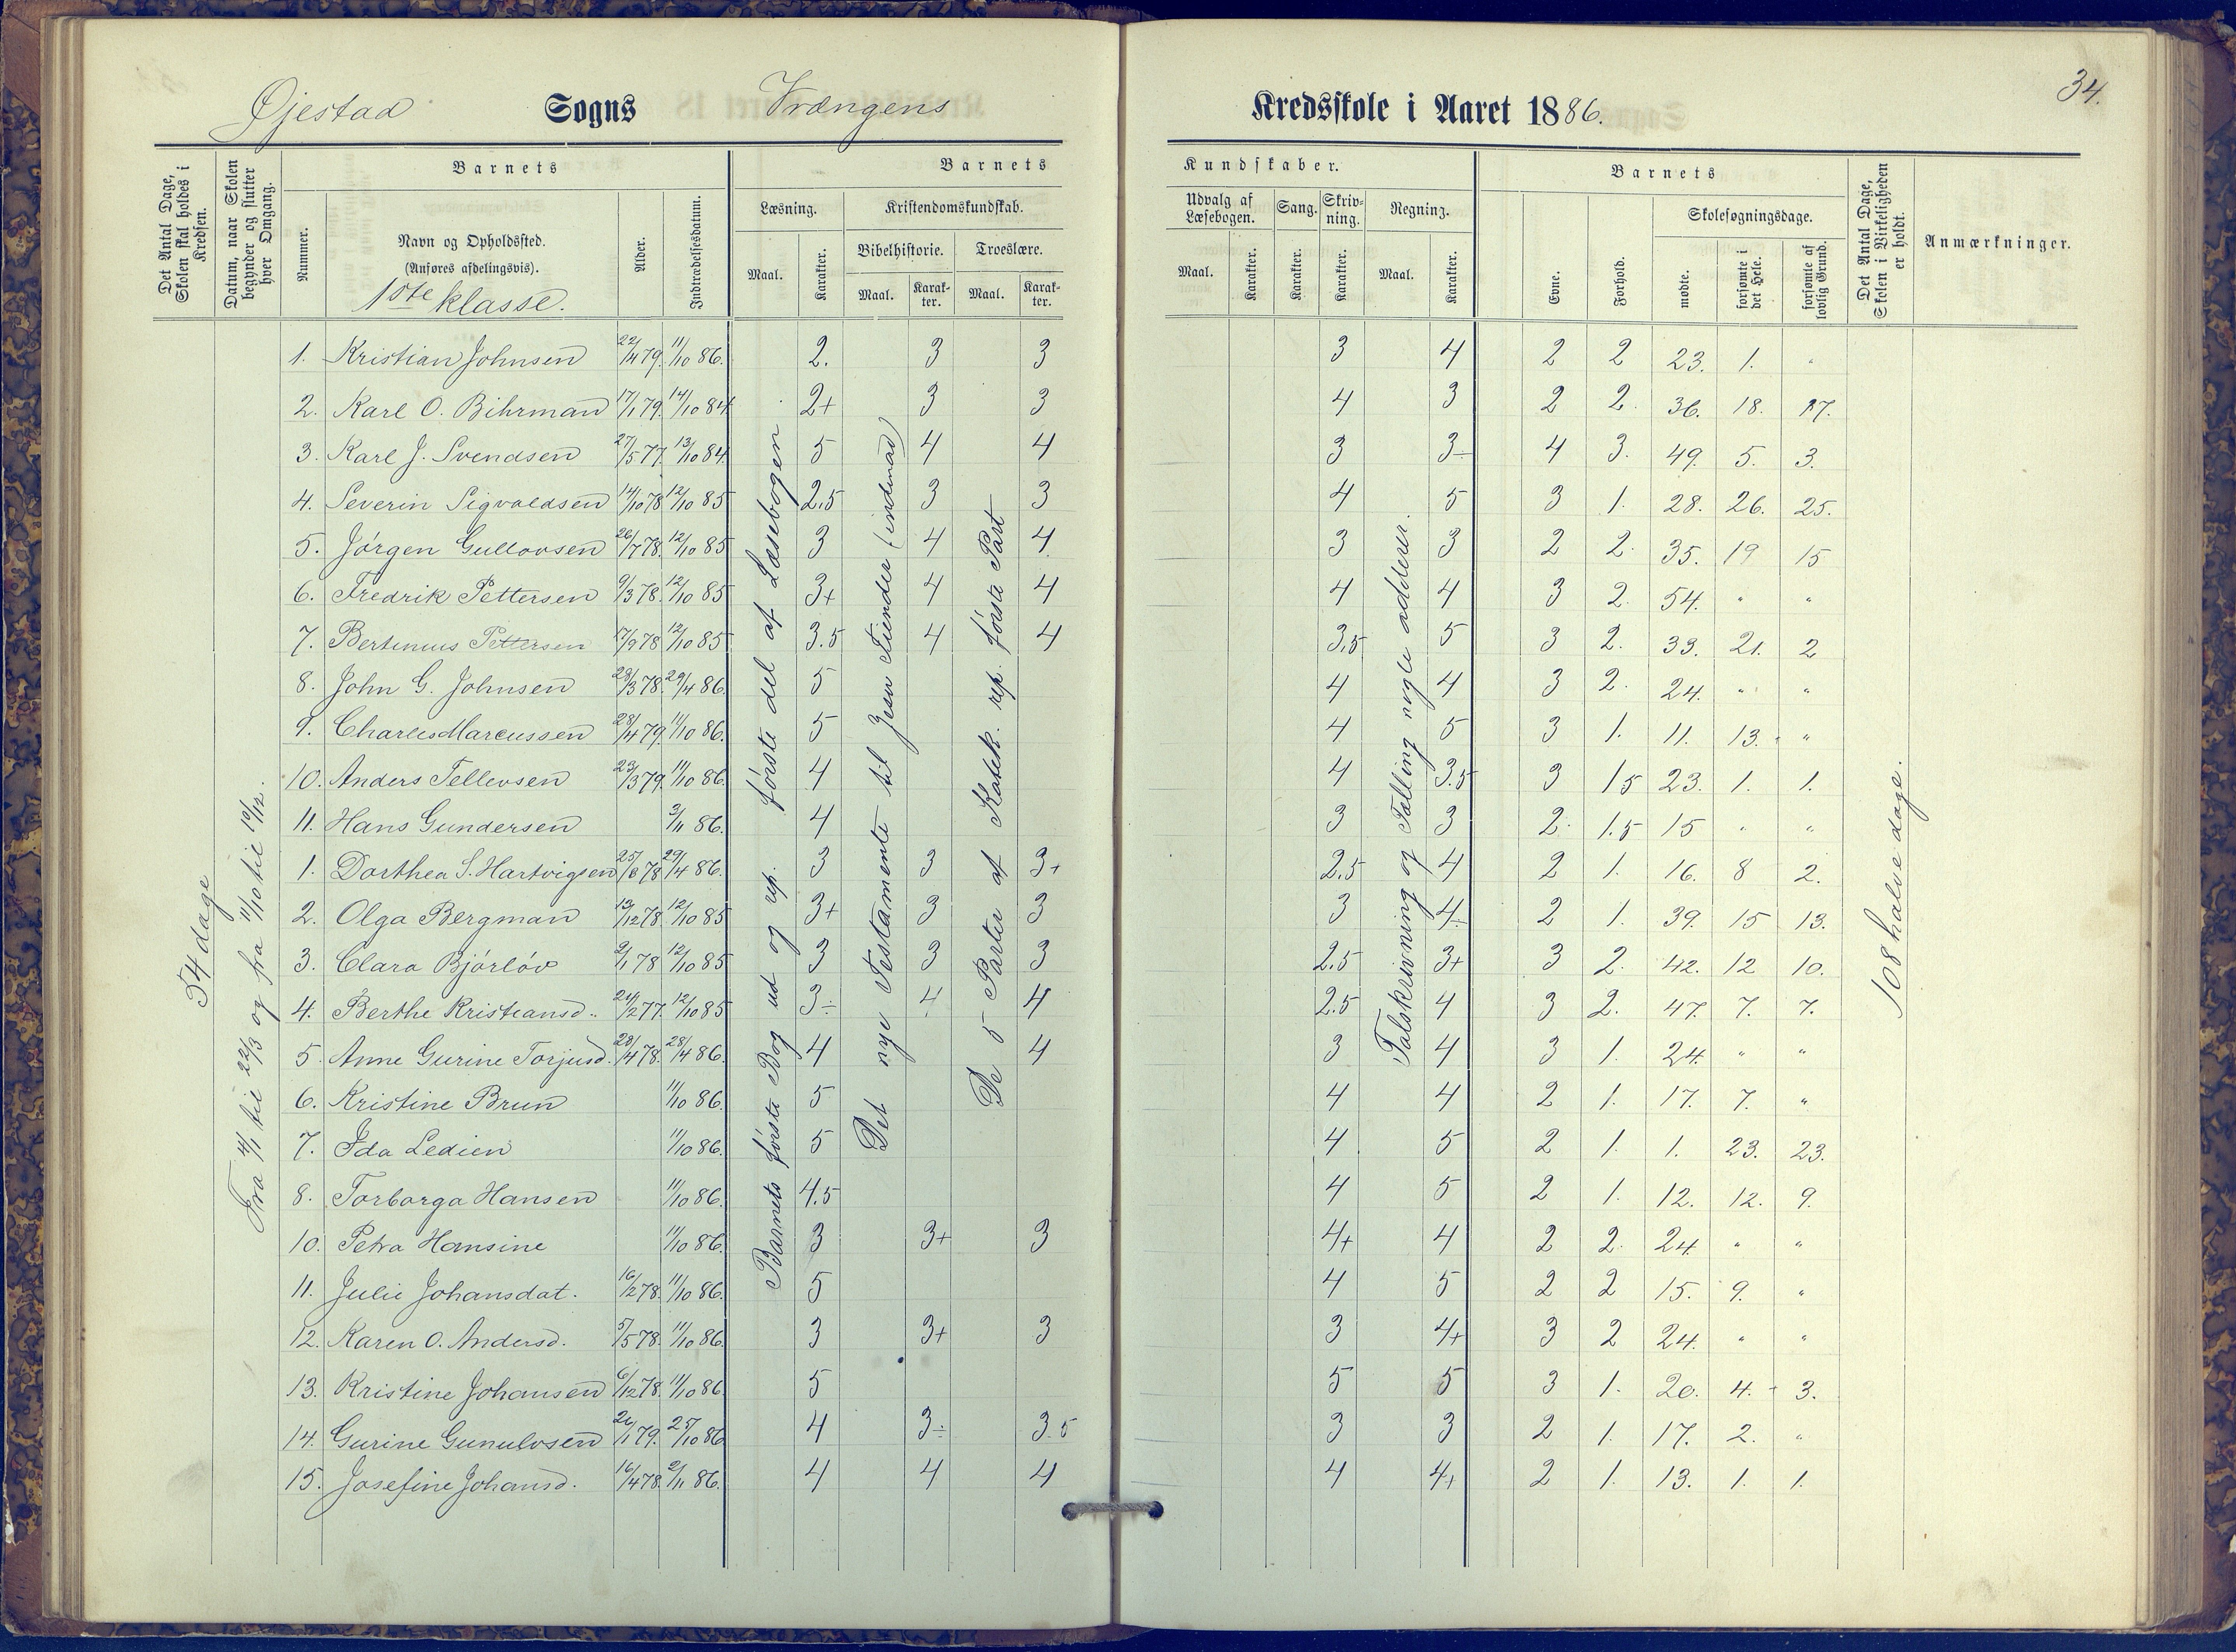 34.
Øjestad Sogns Vrængens Kredsskole i Aaret 1886.
Det Antal Dage, Skolen skal holdes i Kredsen.
Datum, naar Skolen begynder og slutter hver Omgang.
Barnets
Nummer.
Navn og Opholdssted.
(Anføres afdelingsvis).
1ste klasse.
Alder.
Indtrædelsesdatum.
Barnets Kundskaber.
Læsning.
Maal.
Karakter.
Kristendomskundskab.
Bibelhistorie.
Maal.
Karakter.
Troeslære.
Maal.
Karakter.
Udvalg af Læsebogen.
Maal.
Karakter.
Sang.
Karakter.
Skrivning.
Karakter.
Regning.
Maal.
Karakter.
Barnets
Evne.
Forhold.
Skolesøgningsdage.
mødte.
forsømte i det Hele.
forsømte af lovlig Grund.
Det Antal Dage, Skolen i Virkeligheden er holdt.
Anmærkninger.
54 dage
Fra 4/1 til 22/3 og fra 11/10 til 10/12.
Barnets første Bog ud og rep. første del af Læsebogen
Det nye Testamente til Jesu Fiender (indenad)
De 5 Parter af Katek. rep. første Part
Talskrivning og Tælling nogle adderer.
108 halve dage.
1. Kristian Johnsen 22/4 79. 11/10 86. 2. 3 3 3 4 2 2 23. 1. "
2. Karl O. Bihrman 17/1 79. 14/10 84 2+ 3 3 4 3 2 2. 36. 18. 17.
3. Karl J. Svendsen 27/5 77. 13/10 84. 5 4 4 3 3÷ 4 3. 49. 5. 3.
4. Severin Sigvaldsen 14/10 78 12/10 85 2,5 3 3 4 5 3 1. 28. 26. 25.
5. Jörgen Gullovsen 26/7 78. 12/10 85 3 4 4 3 3 2 2. 35. 19 15
6. Fredrik Pettersen 9/3 78. 12/10 85 3+ 4 4 4 4 3 2. 54. " "
7. Bertinius Pettersen 17/9 78 12/10 85 3.5 4 4 3,5 5 3 2. 33. 21. 2
8. John G. Johnsen 28/3 78. 29/4 86. 5 4 4 3 2. 24. " "
9. Charles Marcussen 28/4 79. 11/10 86. 5 4 5 3 1. 11. 13. "
10. Anders Tellevsen 23/3 79. 11/10 86. 4 4 3.5 3 1 5 23. 1. 1.
11. Hans Gundersen 3/11 86. 4 3 3 2. 1.5 15 " "
1. Dorthea S. Hartvigsen 25/6 78 29/4 86. 3 3 3+ 2,5 4 2 1. 16. 8 2.
2. Olga Bergman 13/12 78. 12/10 85 3+ 3 3 3 4÷ 2 1. 39. 15 13.
3. Clara Bjórlóv 2/1 78 12/10 85 3 3 3 2.5 3+ 3 2. 42. 12 10.
4. Berthe Kristiansd. 21/2 77. 12/10 85 3÷ 4 4 2.5 4 3 2. 47. 7. 7.
5. Anne Gurine Torjusd. 28/4 78. 28/4 86. 4 4 3 4 3 1. 24. " "
6. Kristine Brun 11/10 86. 5 4 4 2 1. 17. 7. "
7. Ida Ledien 11/10 86. 5 4 5 2 1. 1. 23. 23.
8. Torborga Hansen 11/10 86. 4.5 4 5 2 1. 12. 12. 9.
10. Petra Hansine 11/10 86. 3 3+ 3 4+ 4 2 2. 24. " "
11. Julie Johansdat. 16/2 78. 11/10 86. 5 4 5 2 2 15. 9. "
12. Karen O. Andersd. 5/5 78. 11/10 86. 3 3+ 3 3 4+ 3 2 24. " "
13. Kristine Johansen 6/12 78. 11/10 86. 5 5 5 3 1. 20. 4. 3.
14. Gurine Gunulvsen 26/1 79. 25/10 86 4 3÷ 3.5 3 3 2 1. 17. 2. "
15. Josefine Johansd. 16/4 78. 2/11 86. 4 4 4 4 4+ 2 1. 13. 1. 1.